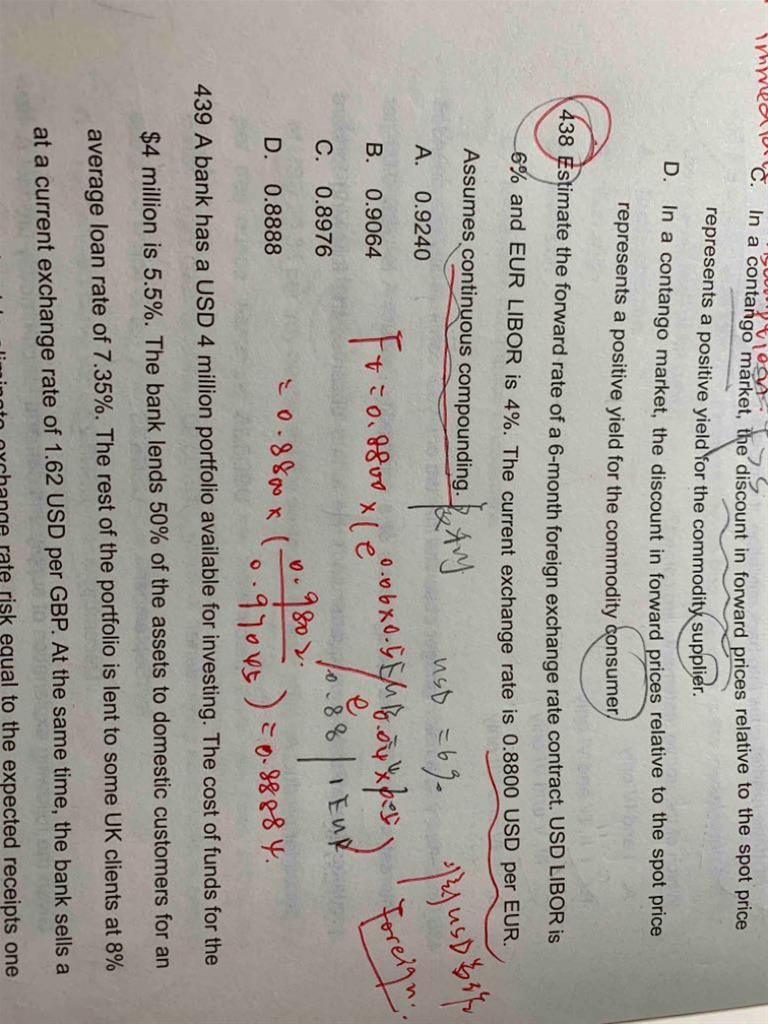 immediate
C. In a contango market, the discount in forward prices relative to the spot price
represents a positive yield for the commodity supplier.
D. In a contango market, the discount in forward prices relative to the spot price
represents a positive yield for the commodity consumer.
438 Estimate the forward rate of a 6-month foreign exchange rate contract. USD LIBOR is
6% and EUR LIBOR is 4%. The current exchange rate is 0.8800 USD per EUR.
Assumes continuous compounding.
USD = 6%
A. 0.9240
B. 0.9064
C. 0.8976
D. 0.8888
0.88 / 1 EUR
Foreign.
= 0.8800 × ( 0.9802 / 0.97045 ) = 0.88884.
439 A bank has a USD 4 million portfolio available for investing. The cost of funds for the
$4 million is 5.5%. The bank lends 50% of the assets to domestic customers for an
average loan rate of 7.35%. The rest of the portfolio is lent to some UK clients at 8%
at a current exchange rate of 1.62 USD per GBP. At the same time, the bank sells a
exchange rate risk equal to the expected receipts one